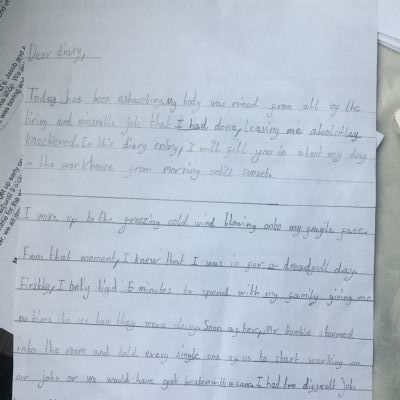 Dear diary,
Today has been exhausting. My body was from all of the
tiring and miserable jobs that I had done, leaving me absolutley
knackered. In this diary entry, I will fill you in about my day
in the workhouse from morning until sunset.
I woke up to the freezing cold wind blowing onto my fragile face.
From that moment, I knew that I was in for a dreadfull day.
Firstley, I only had 5 minutes to spend with my family giving me
no time to see how they were doing. Soon after, Mr Bumble stormed
into the room and told every single one of us to start working on
our jobs or we would have got beaten with a cane. I had two difficult jobs